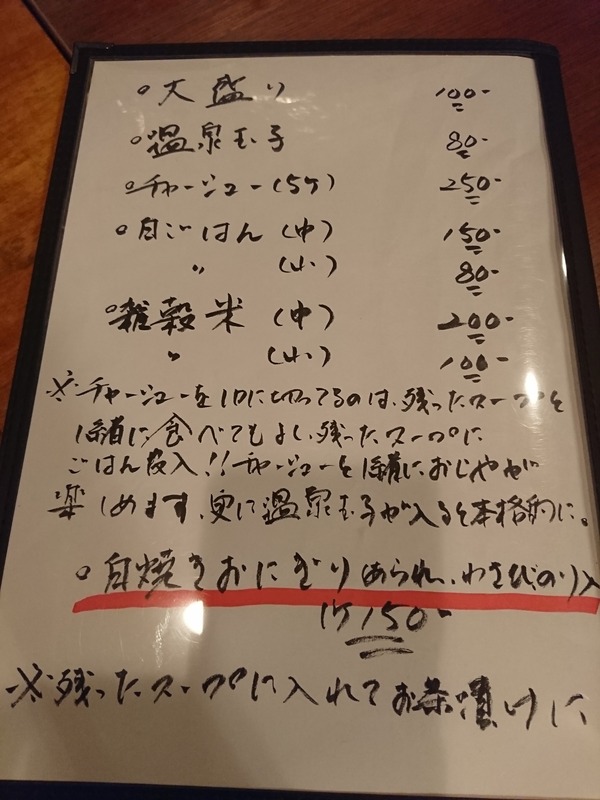 ○大盛り 100-
○温泉玉子 80-
○チャーシュー(5ケ) 250-
○白ごはん(中) 150-
〃 (小) 80-
○雑穀米(中) 200-
〃 (小) 100-
※チャーシューを1口に切ってるのは、残ったスープと
1緒に食べてもよし、残ったスープに
ごはん投入!!チャーシューと1緒におじやが
楽しめます、更に温泉玉子が入ると本格的に。
○白焼きおにぎり(あられ、わさび、のり入
1ケ150-
※残ったスープに入れてお茶漬けに